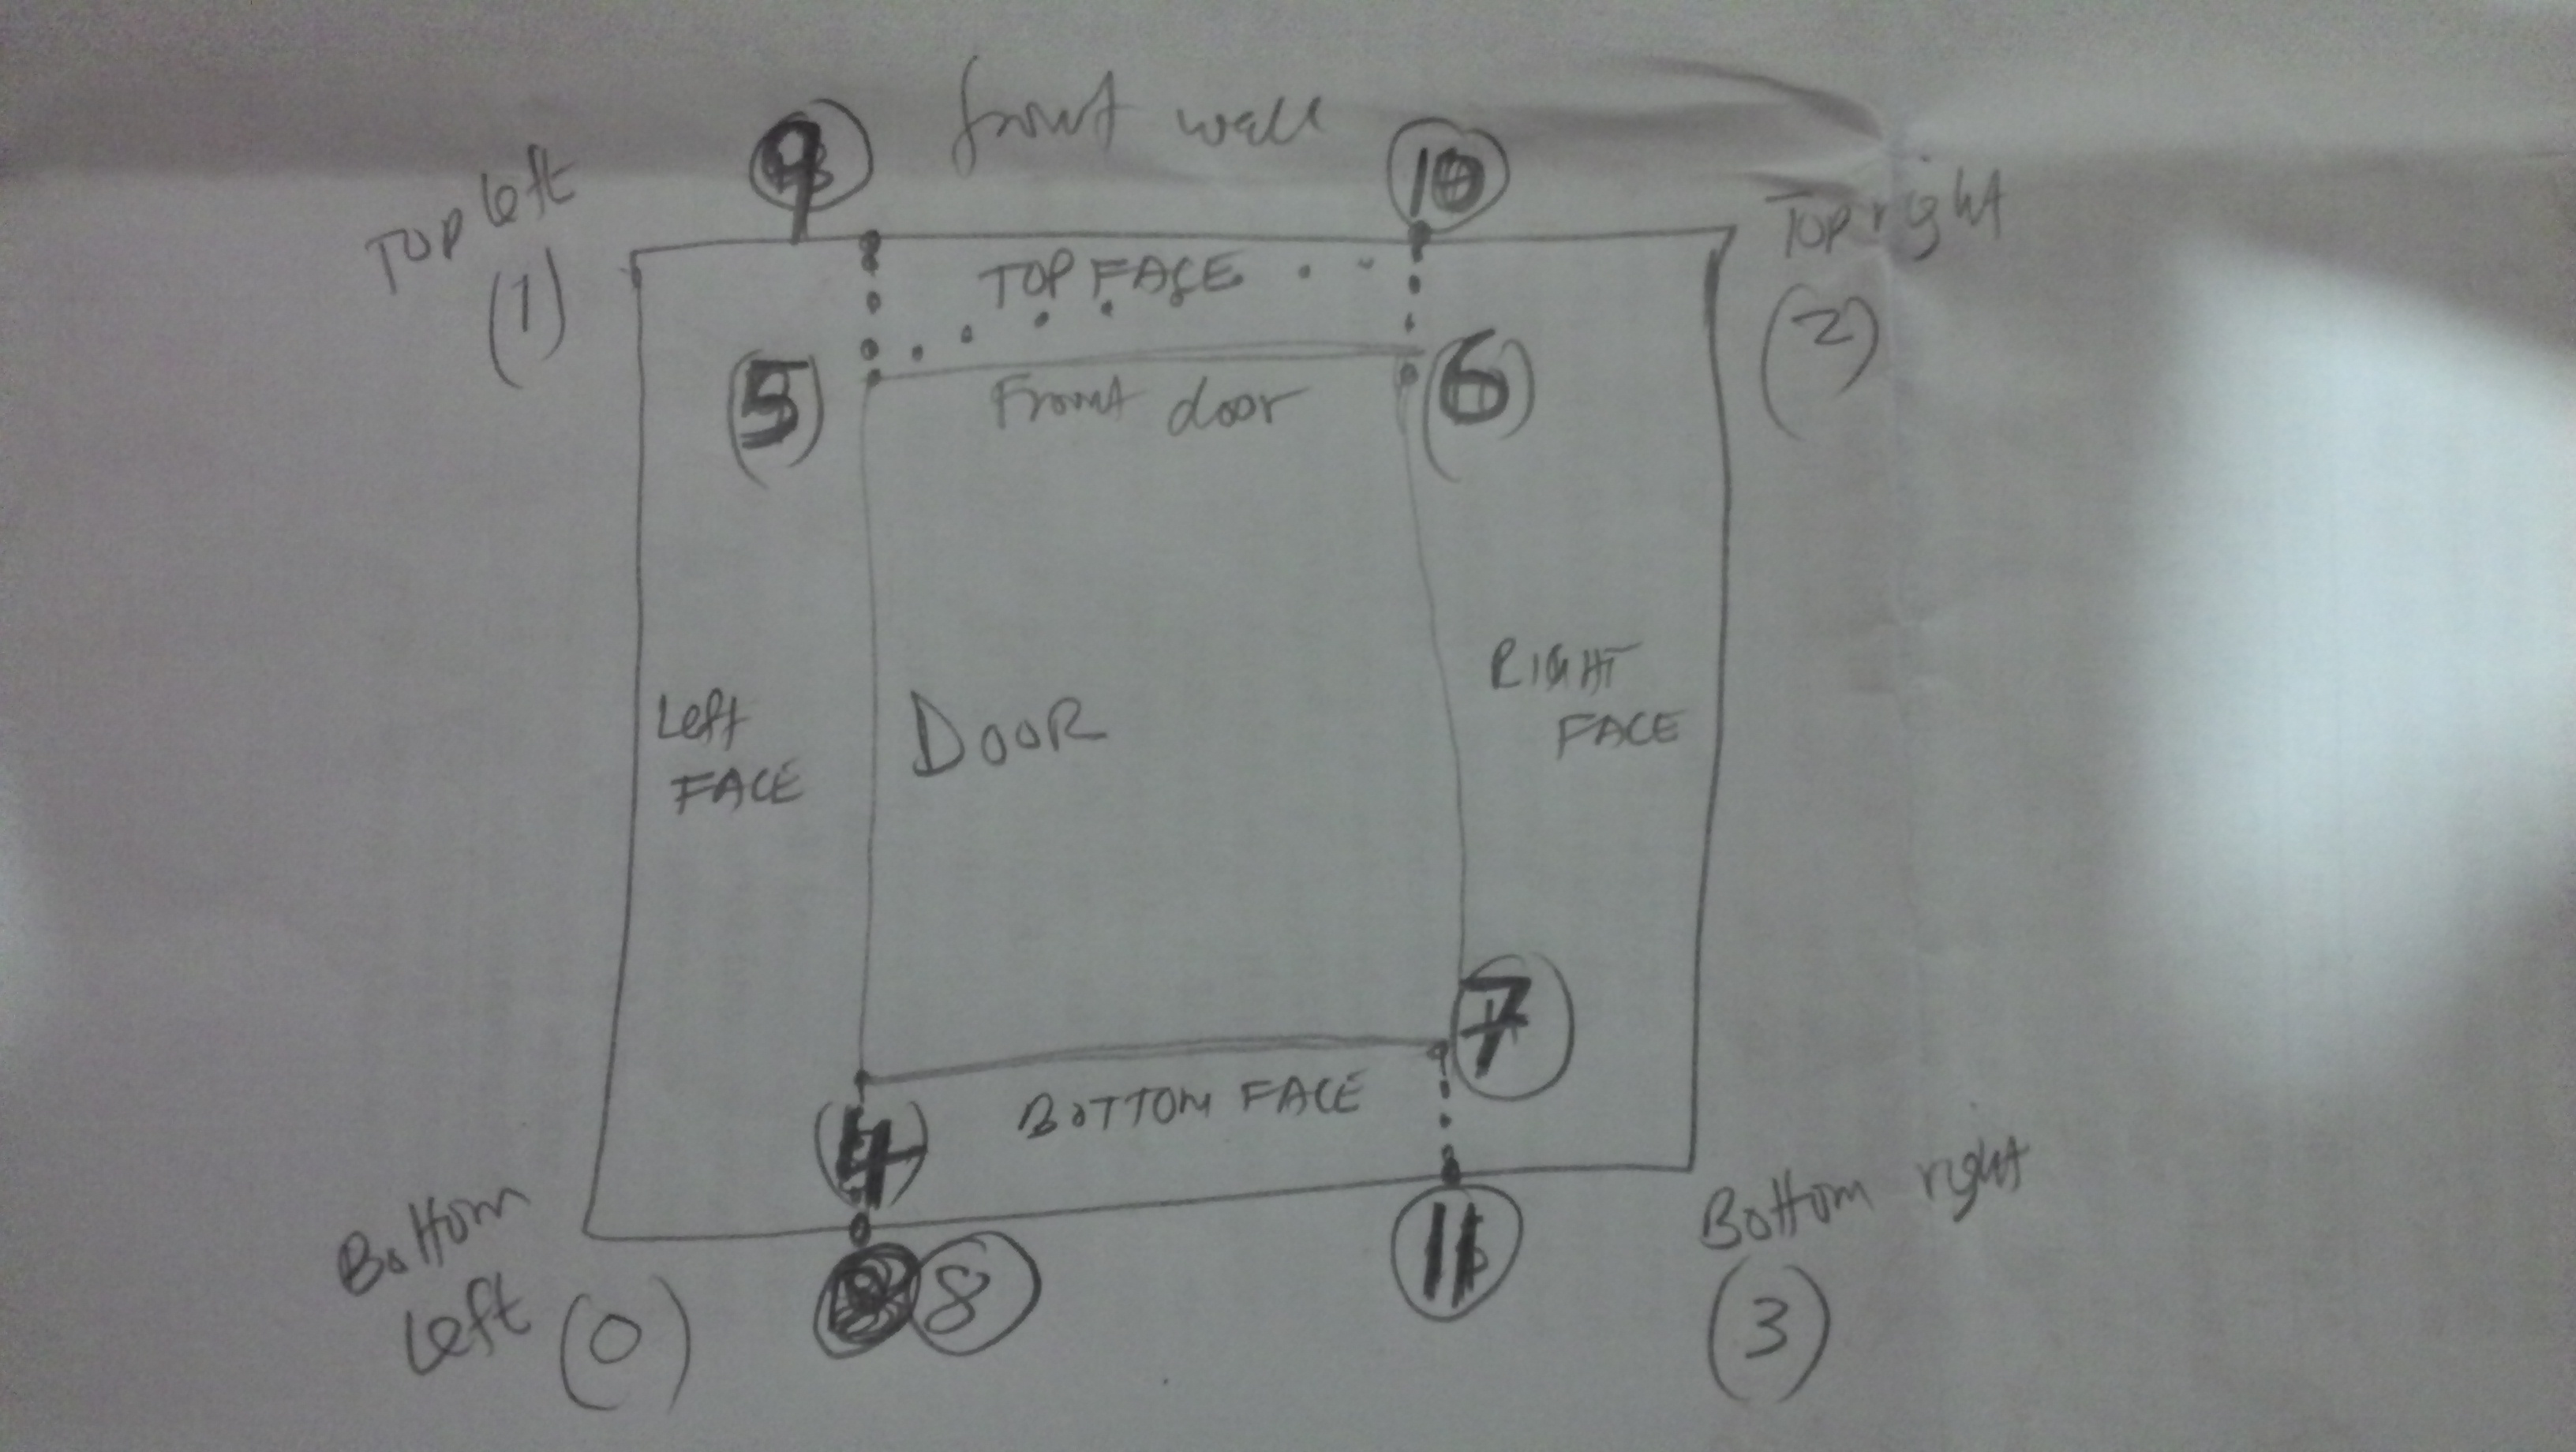 front wall
9
10
TOP left
(1)
Top right
(2)
TOP FACE
(5)
(6)
Front door
Left
FACE
DOOR
RIGHT
FACE
7
BOTTOM FACE
(4)
Bottom
left (0)
8
11
Bottom right
(3)